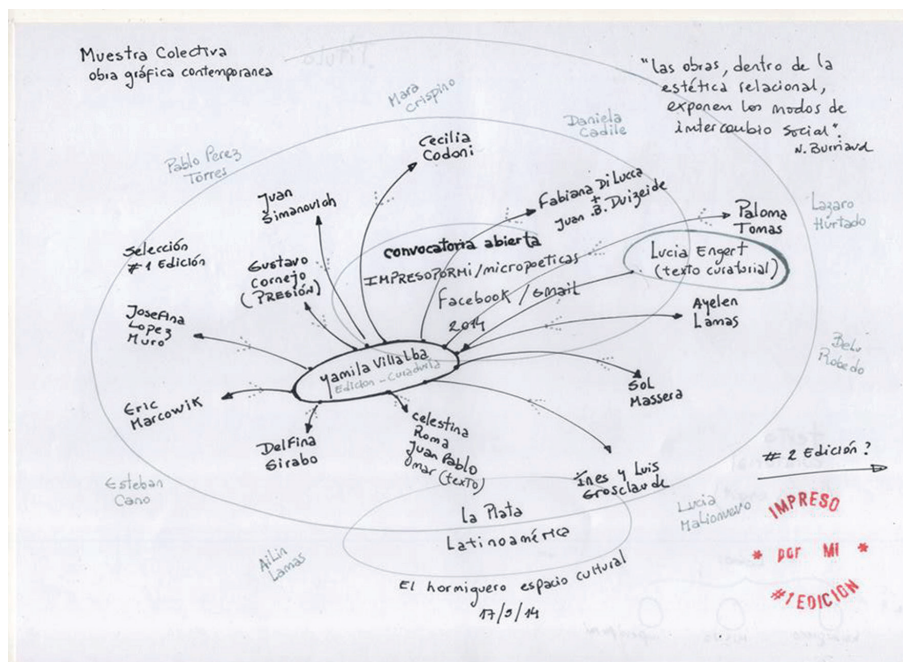 Muestra Colectiva
obra gráfica contemporanea
"las obras, dentro de la
estética relacional,
exponen los modos de
intercambio social".
N. Burriaud
Mara
Crispino
Daniela
Cadile
Pablo Perez
Torres
Cecilia
Codoni
Juan
Simanovich
Fabiana Di Lucca
+
Juan B. Duizeide
Paloma
Tomas
Lazaro
Hurtado
Selección
#1 Edición
Gustavo
Cornejo
(PRESIÓN)
convocatoria abierta
IMPRESOPORMI/micropoeticas
Facebook / Gmail
2014
Lucia Engert
(texto curatorial)
Ayelen
Lamas
Josefina
Lopez
Muro
Yamila Villalba
Edicion - Curaduría
Sol
Massera
Robedo
Eric
Marcowik
Delfina
Girabo
Celestina
Roma
Juan Pablo
Omar (texto)
Ines y Luis
Grosclaude
# 2 Edición?
Esteban
Cano
Lucia
La Plata
Latinoamérica
Ailin
Lamas
El hormiguero espacio cultural
17/5/14
IMPRESO
* por MI *
#1 EDICION